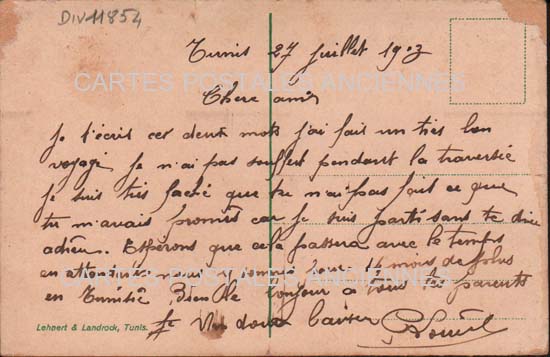 DIV11854
Tunis 27 juillet 1903
CARTES POSTALES ANCIENNES
Chere amis
Je t'écrit ces deux mots j'ai fait un tres bon
voyage je n'ai pas souffert pendant la traversée
je suis très faché que tu n'ai pas fait ce que
tu m'avais promis car je suis parti sans te dire
adieu. Esperons que cela passera avec le temps
en attendant nous sommes pour 14 mois de plus
en Tunisie Bien le bonjour a tous tes parents
Un doux baiser
Lehnert & Landrock, Tunis.